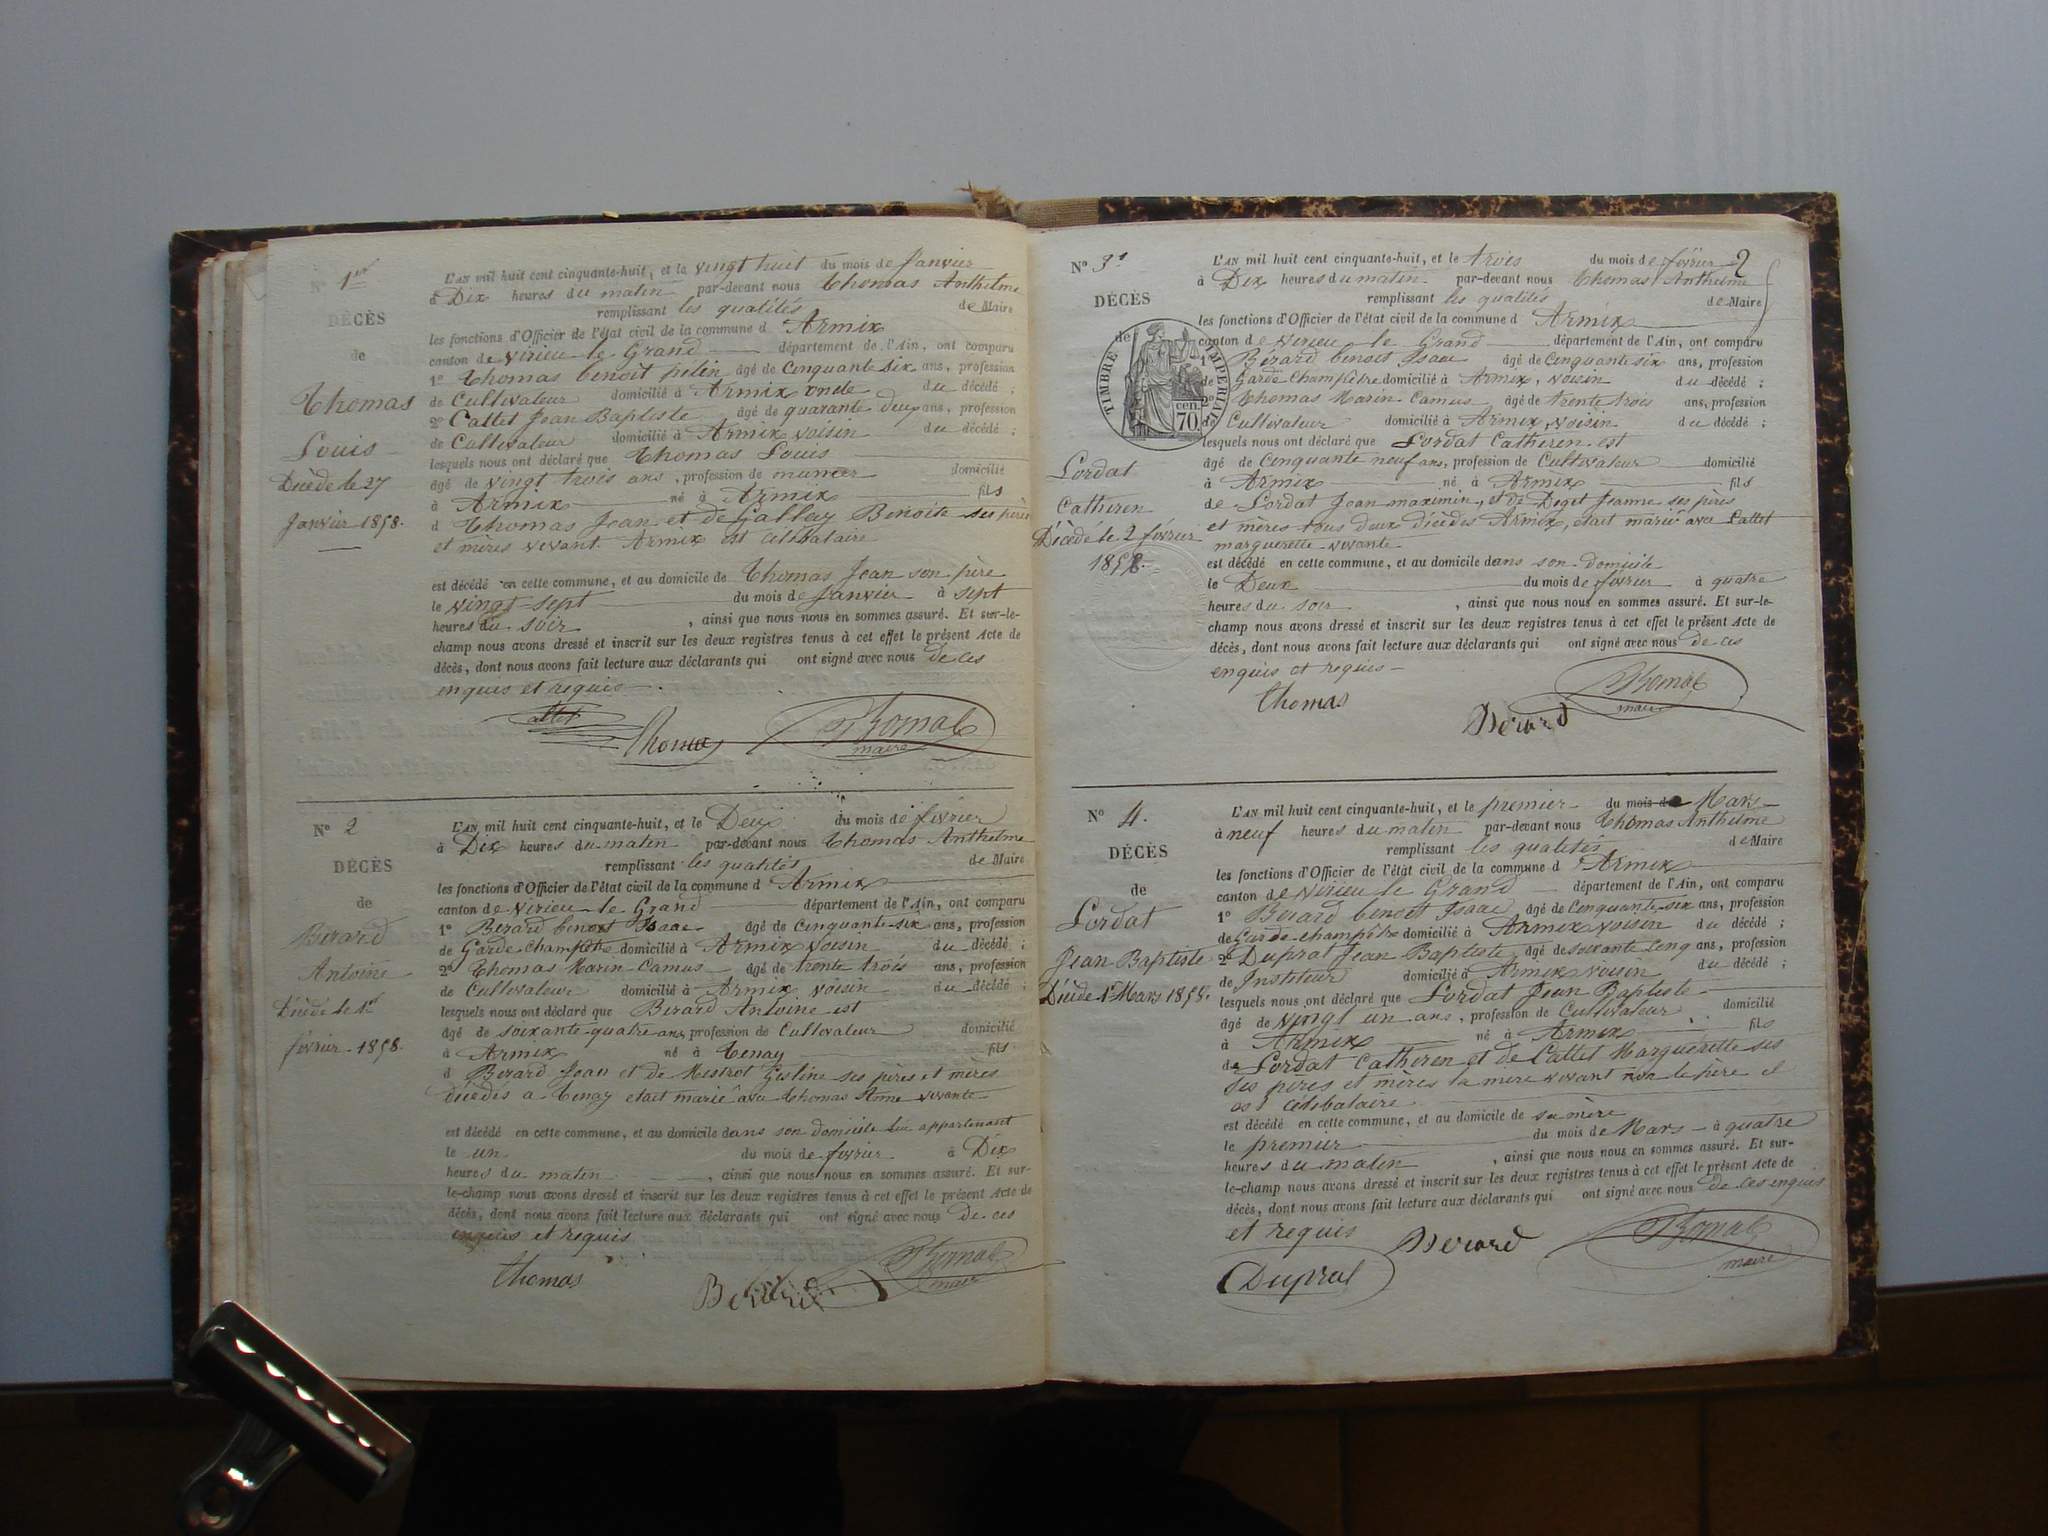 N° 1er
DÉCÈS
de
Thomas
Louis
Décède le 27
Janvier 1858.
L'AN mil huit cent cinquante-huit, et le vingt huit du mois de Janvier
à Dix heures du matin par-devant nous Thomas Anthelme
remplissant les qualités de Maire
les fonctions d'Officier de l'état civil de la commune d Armix
canton de virieu le Grand département de l'Ain, ont comparu
1° Thomas benoit âgé de Cinquante six ans, profession
de Cultivateur domicilié à Armix oncle du décédé ;
2° Cattet Jean Baptiste âgé de quarante deux ans, profession
de Cultivateur domicilié à Armix voisin du décédé ;
lesquels nous ont déclaré que Thomas Louis
âgé de vingt trois ans, profession de domicilié
à Armix né à Armix fils
d Thomas Jean et de Gallay Benoite ses pères
et mères vivant Armix est célibataire
est décédé en cette commune, et au domicile de Thomas Jean son père
le vingt-sept du mois de Janvier à sept
heures du soir , ainsi que nous nous en sommes assuré. Et sur-le-
champ nous avons dressé et inscrit sur les deux registres tenus à cet effet le présent Acte de
décès, dont nous avons fait lecture aux déclarants qui ont signé avec nous de ces
enquis et requis
Cattet Thomas Thomas
maire
N° 2
DÉCÈS
de
Bérard
Antoine
Décède le 1er
février 1858.
L'AN mil huit cent cinquante-huit, et le Deux du mois de février
à Dix heures du matin par-devant nous Thomas Anthelme
remplissant les qualités de Maire
les fonctions d'Officier de l'état civil de la commune d Armix
canton de Virieu le Grand département de l'Ain, ont comparu
1° Berard benoit Isaac âgé de Cinquante six ans, profession
de Garde Champêtre domicilié à Armix voisin du décédé ;
2° Thomas Marin Camus âgé de trente trois ans, profession
de Cultivateur domicilié à Armix voisin du décédé ;
lesquels nous ont déclaré que Berard Antoine est
âgé de soixante quatre ans, profession de Cultivateur domicilié
à Armix né à Tenay fils
d Berard Jean et de Mestrot ses pères et mères
décédés a Tenay etait marié avec Thomas Anne vivante
est décédé en cette commune, et au domicile dans son domicile lui appartenant
le un du mois de février à Dix
heures du matin , ainsi que nous nous en sommes assuré. Et sur-
le-champ nous avons dressé et inscrit sur les deux registres tenus à cet effet le présent Acte de
décès, dont nous avons fait lecture aux déclarants qui ont signé avec nous de ces
enquis et requis
Thomas Berard Thomas
maire
2
N° 3
DÉCÈS
de
TIMBRE IMPÉRIAL
70 cen.
Lordat
Catheren
Décédé le 2 février
1858.
L'AN mil huit cent cinquante-huit, et le trois du mois de février
à Dix heures du matin par-devant nous Thomas Anthelme
remplissant les qualités de Maire
les fonctions d'Officier de l'état civil de la commune d Armix
canton de Virieu le Grand département de l'Ain, ont comparu
1° Bérard benoit Isaac âgé de Cinquante six ans, profession
de Garde Champêtre domicilié à Armix, voisin du décédé ;
2° Thomas Marin Camus âgé de trente trois ans, profession
de Cultivateur domicilié à Armix, voisin du décédé ;
lesquels nous ont déclaré que Lordat Catheren est
âgé de Cinquante neuf ans, profession de Cultivateur domicilié
à Armix né à Armix fils
de Lordat Jean maximin, et de Deget Jeanne ses pères
et mères tous deux décédés Armix, etait marié avec Cattet
marguerette vivante
est décédé en cette commune, et au domicile dans son domicile
le Deux du mois de février à quatre
heures du soir , ainsi que nous nous en sommes assuré. Et sur-le-
champ nous avons dressé et inscrit sur les deux registres tenus à cet effet le présent Acte de
décès, dont nous avons fait lecture aux déclarants qui ont signé avec nous de ces
enquis et requis
Thomas Berard Thomas
maire
N° 4.
DÉCÈS
de
Lordat
Jean Baptiste
Décède 1er Mars 1858.
L'AN mil huit cent cinquante-huit, et le premier du mois de Mars
à neuf heures du matin par-devant nous Thomas Anthelme
remplissant les qualités de Maire
les fonctions d'Officier de l'état civil de la commune d Armix
canton de Virieu le Grand département de l'Ain, ont comparu
1° Berard benoit Isaac âgé de Cinquante six ans, profession
de Garde champêtre domicilié à Armix voisin du décédé ;
2° Duprat Jean Baptiste âgé de soixante cinq ans, profession
de Instituteur domicilié à Armix voisin du décédé ;
lesquels nous ont déclaré que Lordat Jean Baptiste
âgé de vingt un ans, profession de Cultivateur domicilié
à Armix né à Armix fils
de Lordat Catheren et de Cattet Marguerette ses
ses pères et mères la mère vivant non le père et
est célibataire
est décédé en cette commune, et au domicile de sa mère
le premier du mois de Mars à quatre
heures du matin , ainsi que nous nous en sommes assuré. Et sur-
le-champ nous avons dressé et inscrit sur les deux registres tenus à cet effet le présent Acte de
décès, dont nous avons fait lecture aux déclarants qui ont signé avec nous de ces enquis
et requis
Duprat Berard Thomas
maire